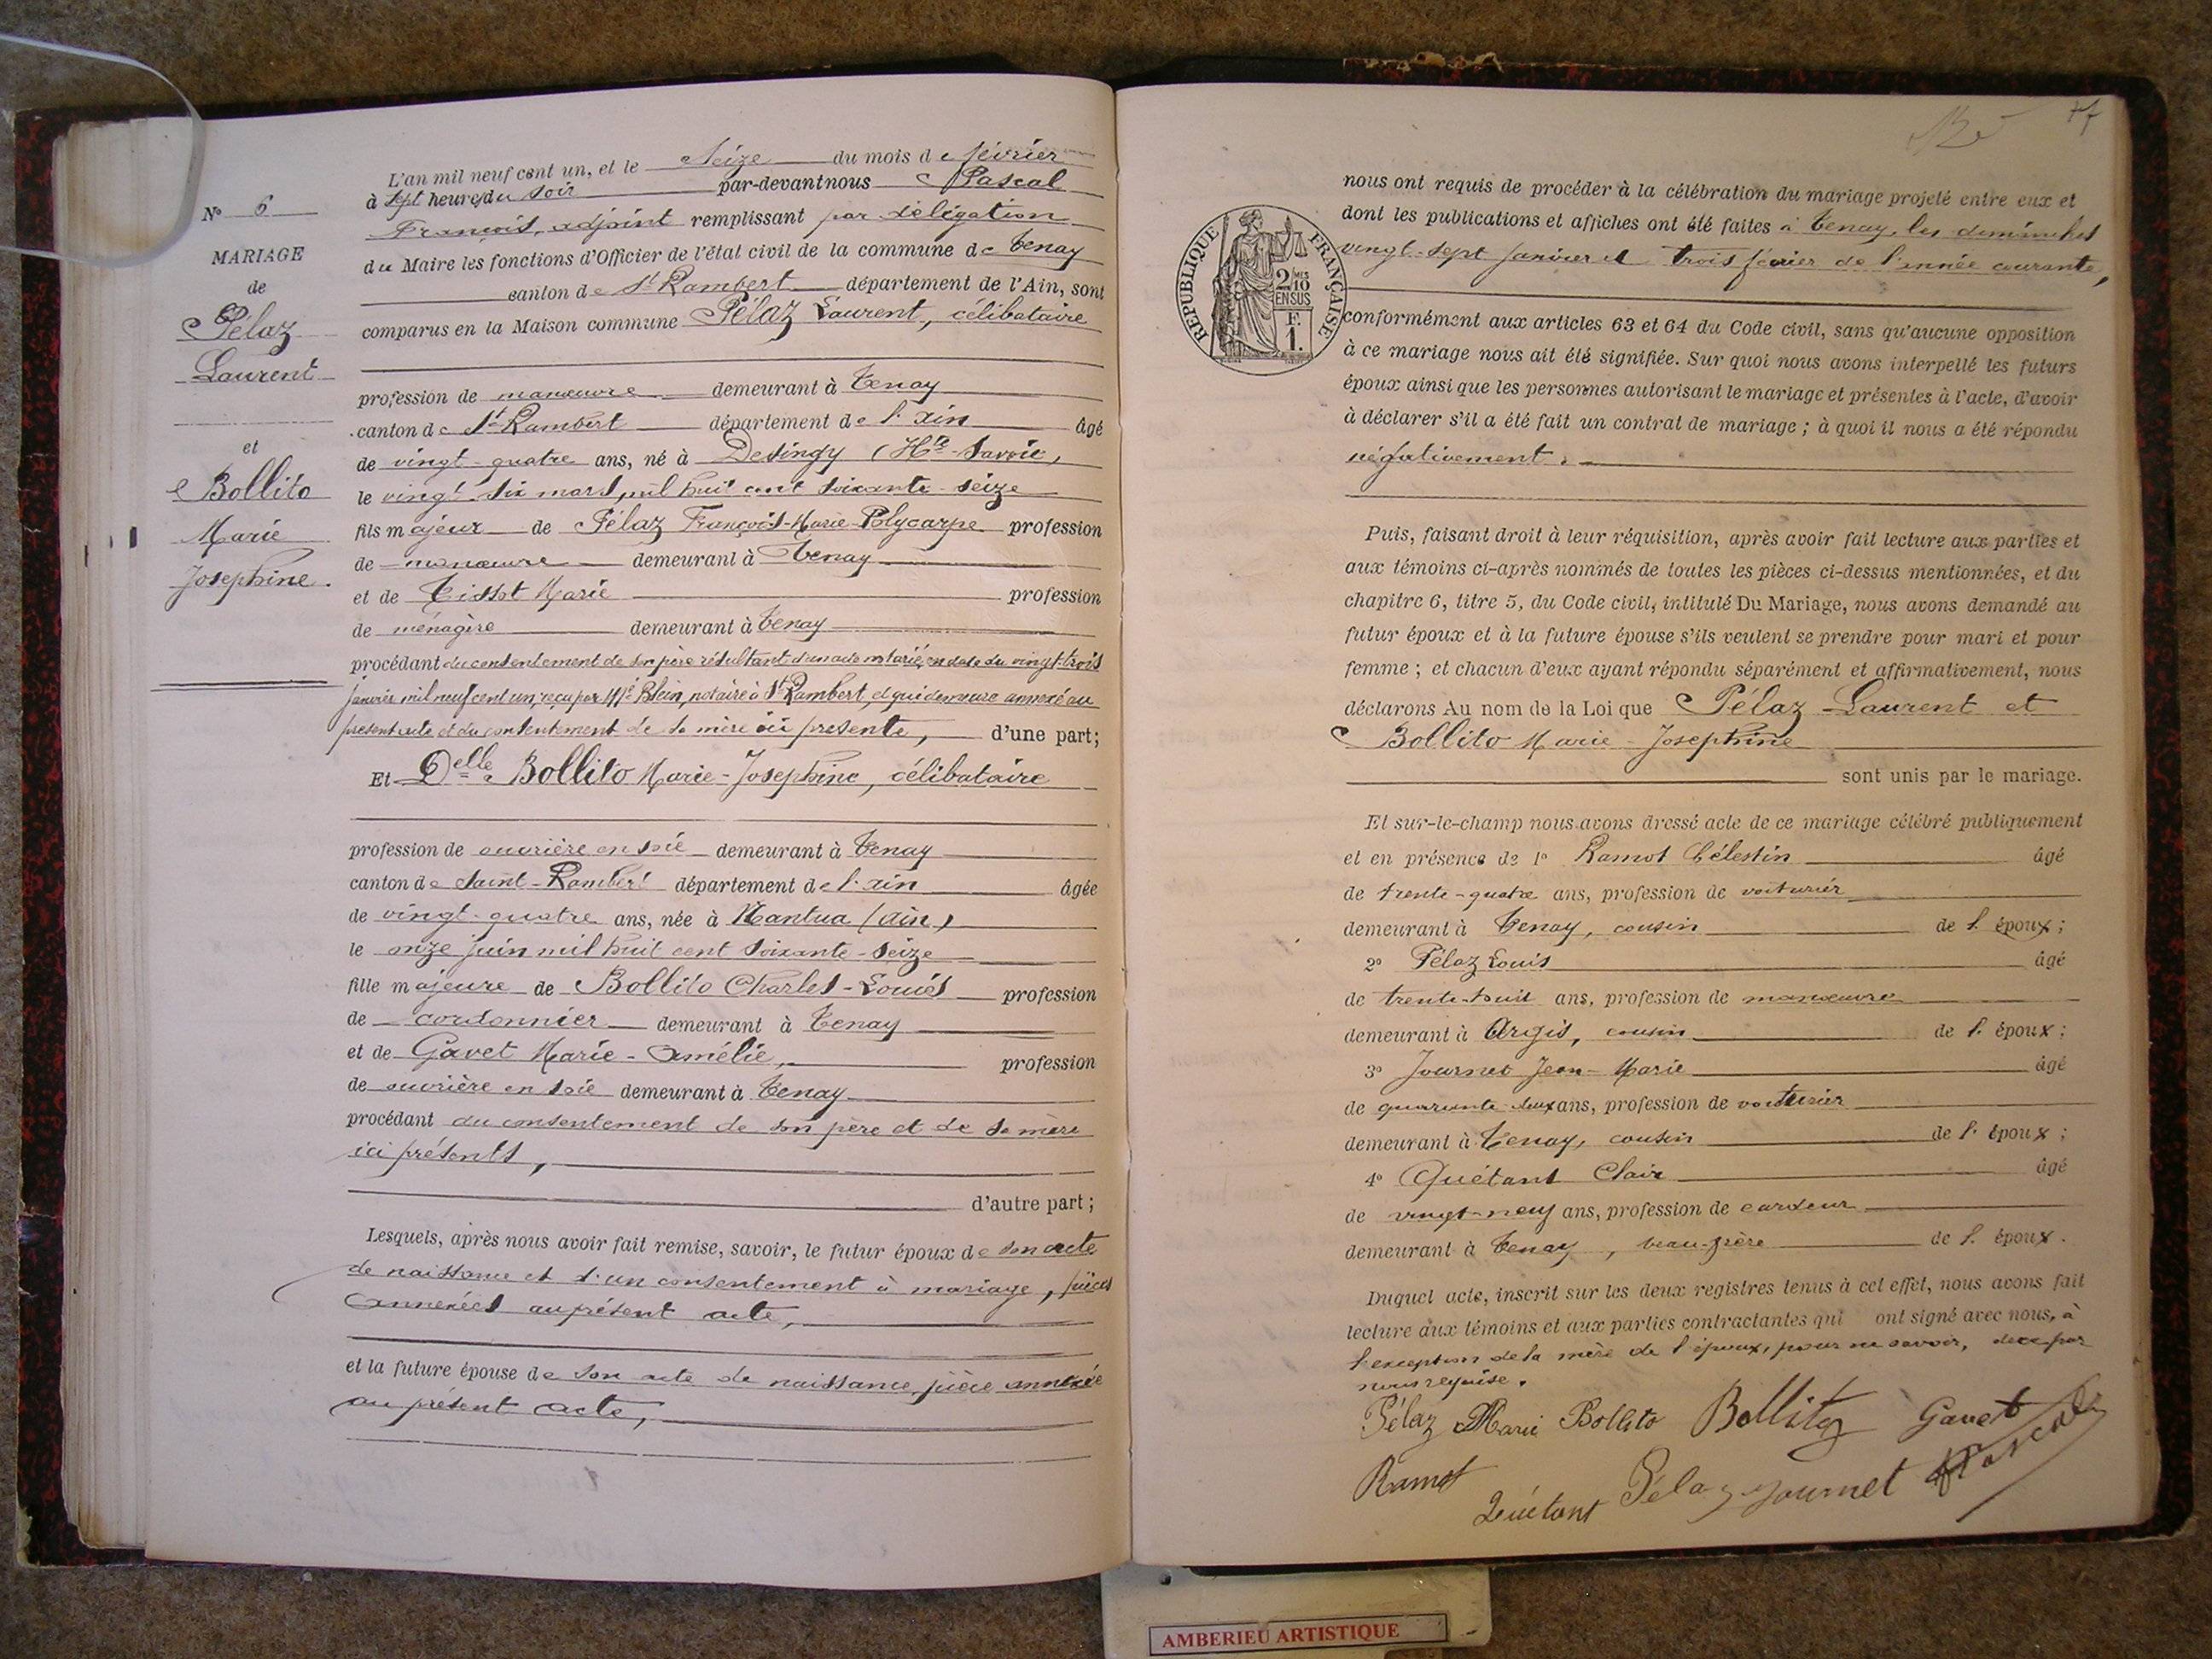 N° 6
MARIAGE
de
Pélaz
Laurent
et
Bollito
Marie
Josephine.
L'an mil neuf cent un, et le seize du mois de février
à sept heures du soir par-devant nous Pascal
François, adjoint remplissant par délégation
du Maire les fonctions d'Officier de l'état civil de la commune de Tenay
canton de St Rambert département de l'Ain, sont
comparus en la Maison commune Pélaz Laurent, célibataire
profession de manœuvre demeurant à Tenay
canton de St Rambert département de l'ain âgé
de vingt-quatre ans, né à Desingy (Hte-Savoie)
le vingt-six mars mil huit cent soixante-seize
fils majeur de Pélaz François-Marie-Polycarpe profession
de manœuvre demeurant à Tenay
et de Tissot Marie profession
de ménagère demeurant à Tenay
procédant du consentement de son père résultant d'un acte notarié en date du vingt-trois
janvier mil neuf cent un, reçu par Me Blein, notaire à St Rambert, et qui demeure annexé au
présent acte et du consentement de sa mère ici présente, d'une part;
Et Delle Bollito Marie-Josephine, célibataire
profession de ouvrière en soie demeurant à Tenay
canton de Saint-Rambert département de l'ain âgée
de vingt-quatre ans, née à Nantua (ain)
le onze juin mil huit cent soixante-seize
fille majeure de Bollito Charles-Louis profession
de cordonnier demeurant à Tenay
et de Gavet Marie-Amélie, profession
de ouvrière en soie demeurant à Tenay
procédant du consentement de son père et de sa mère
ici présents,
d'autre part;
Lesquels, après nous avoir fait remise, savoir, le futur époux de son acte
de naissance et d'un consentement à mariage, pièces
annexées au présent acte,
et la future épouse de son acte de naissance, pièce annexée
au présent acte,
77
REPUBLIQUE FRANÇAISE
2/10 MES
EN SUS
F.
1.
nous ont requis de procéder à la célébration du mariage projeté entre eux et
dont les publications et affiches ont été faites à Tenay, les dimanches
vingt-sept janvier et trois février de l'année courante,
conformément aux articles 63 et 64 du Code civil, sans qu'aucune opposition
à ce mariage nous ait été signifiée. Sur quoi nous avons interpellé les futurs
époux ainsi que les personnes autorisant le mariage et présentes à l'acte, d'avoir
à déclarer s'il a été fait un contrat de mariage ; à quoi il nous a été répondu
négativement.
Puis, faisant droit à leur réquisition, après avoir fait lecture aux parties et
aux témoins ci-après nommés de toutes les pièces ci-dessus mentionnées, et du
chapitre 6, titre 5, du Code civil, intitulé Du Mariage, nous avons demandé au
futur époux et à la future épouse s'ils veulent se prendre pour mari et pour
femme ; et chacun d'eux ayant répondu séparément et affirmativement, nous
déclarons Au nom de la Loi que Pélaz Laurent et
Bollito Marie-Josephine
sont unis par le mariage.
Et sur-le-champ nous avons dressé acte de ce mariage célébré publiquement
et en présence de 1° Ramot Célestin âgé
de trente-quatre ans, profession de voiturier
demeurant à Tenay, cousin de l'époux ;
2° Pélaz Louis âgé
de trente-huit ans, profession de manœuvre
demeurant à Argis, cousin de l'époux ;
3° Journet Jean-Marie âgé
de quarante-deux ans, profession de voiturier
demeurant à Tenay, cousin de l'époux ;
4° Quétant Clair âgé
de vingt-neuf ans, profession de cardeur
demeurant à Tenay, beau-frère de l'époux.
Duquel acte, inscrit sur les deux registres tenus à cet effet, nous avons fait
lecture aux témoins et aux parties contractantes qui ont signé avec nous, à
l'exception de la mère de l'époux, pour ne savoir, de ce par
nous requise.
Pélaz Marie Bollito Bollito Gavet
Ramot Quétant Pélaz Journet Pascal
AMBERIEU ARTISTIQUE